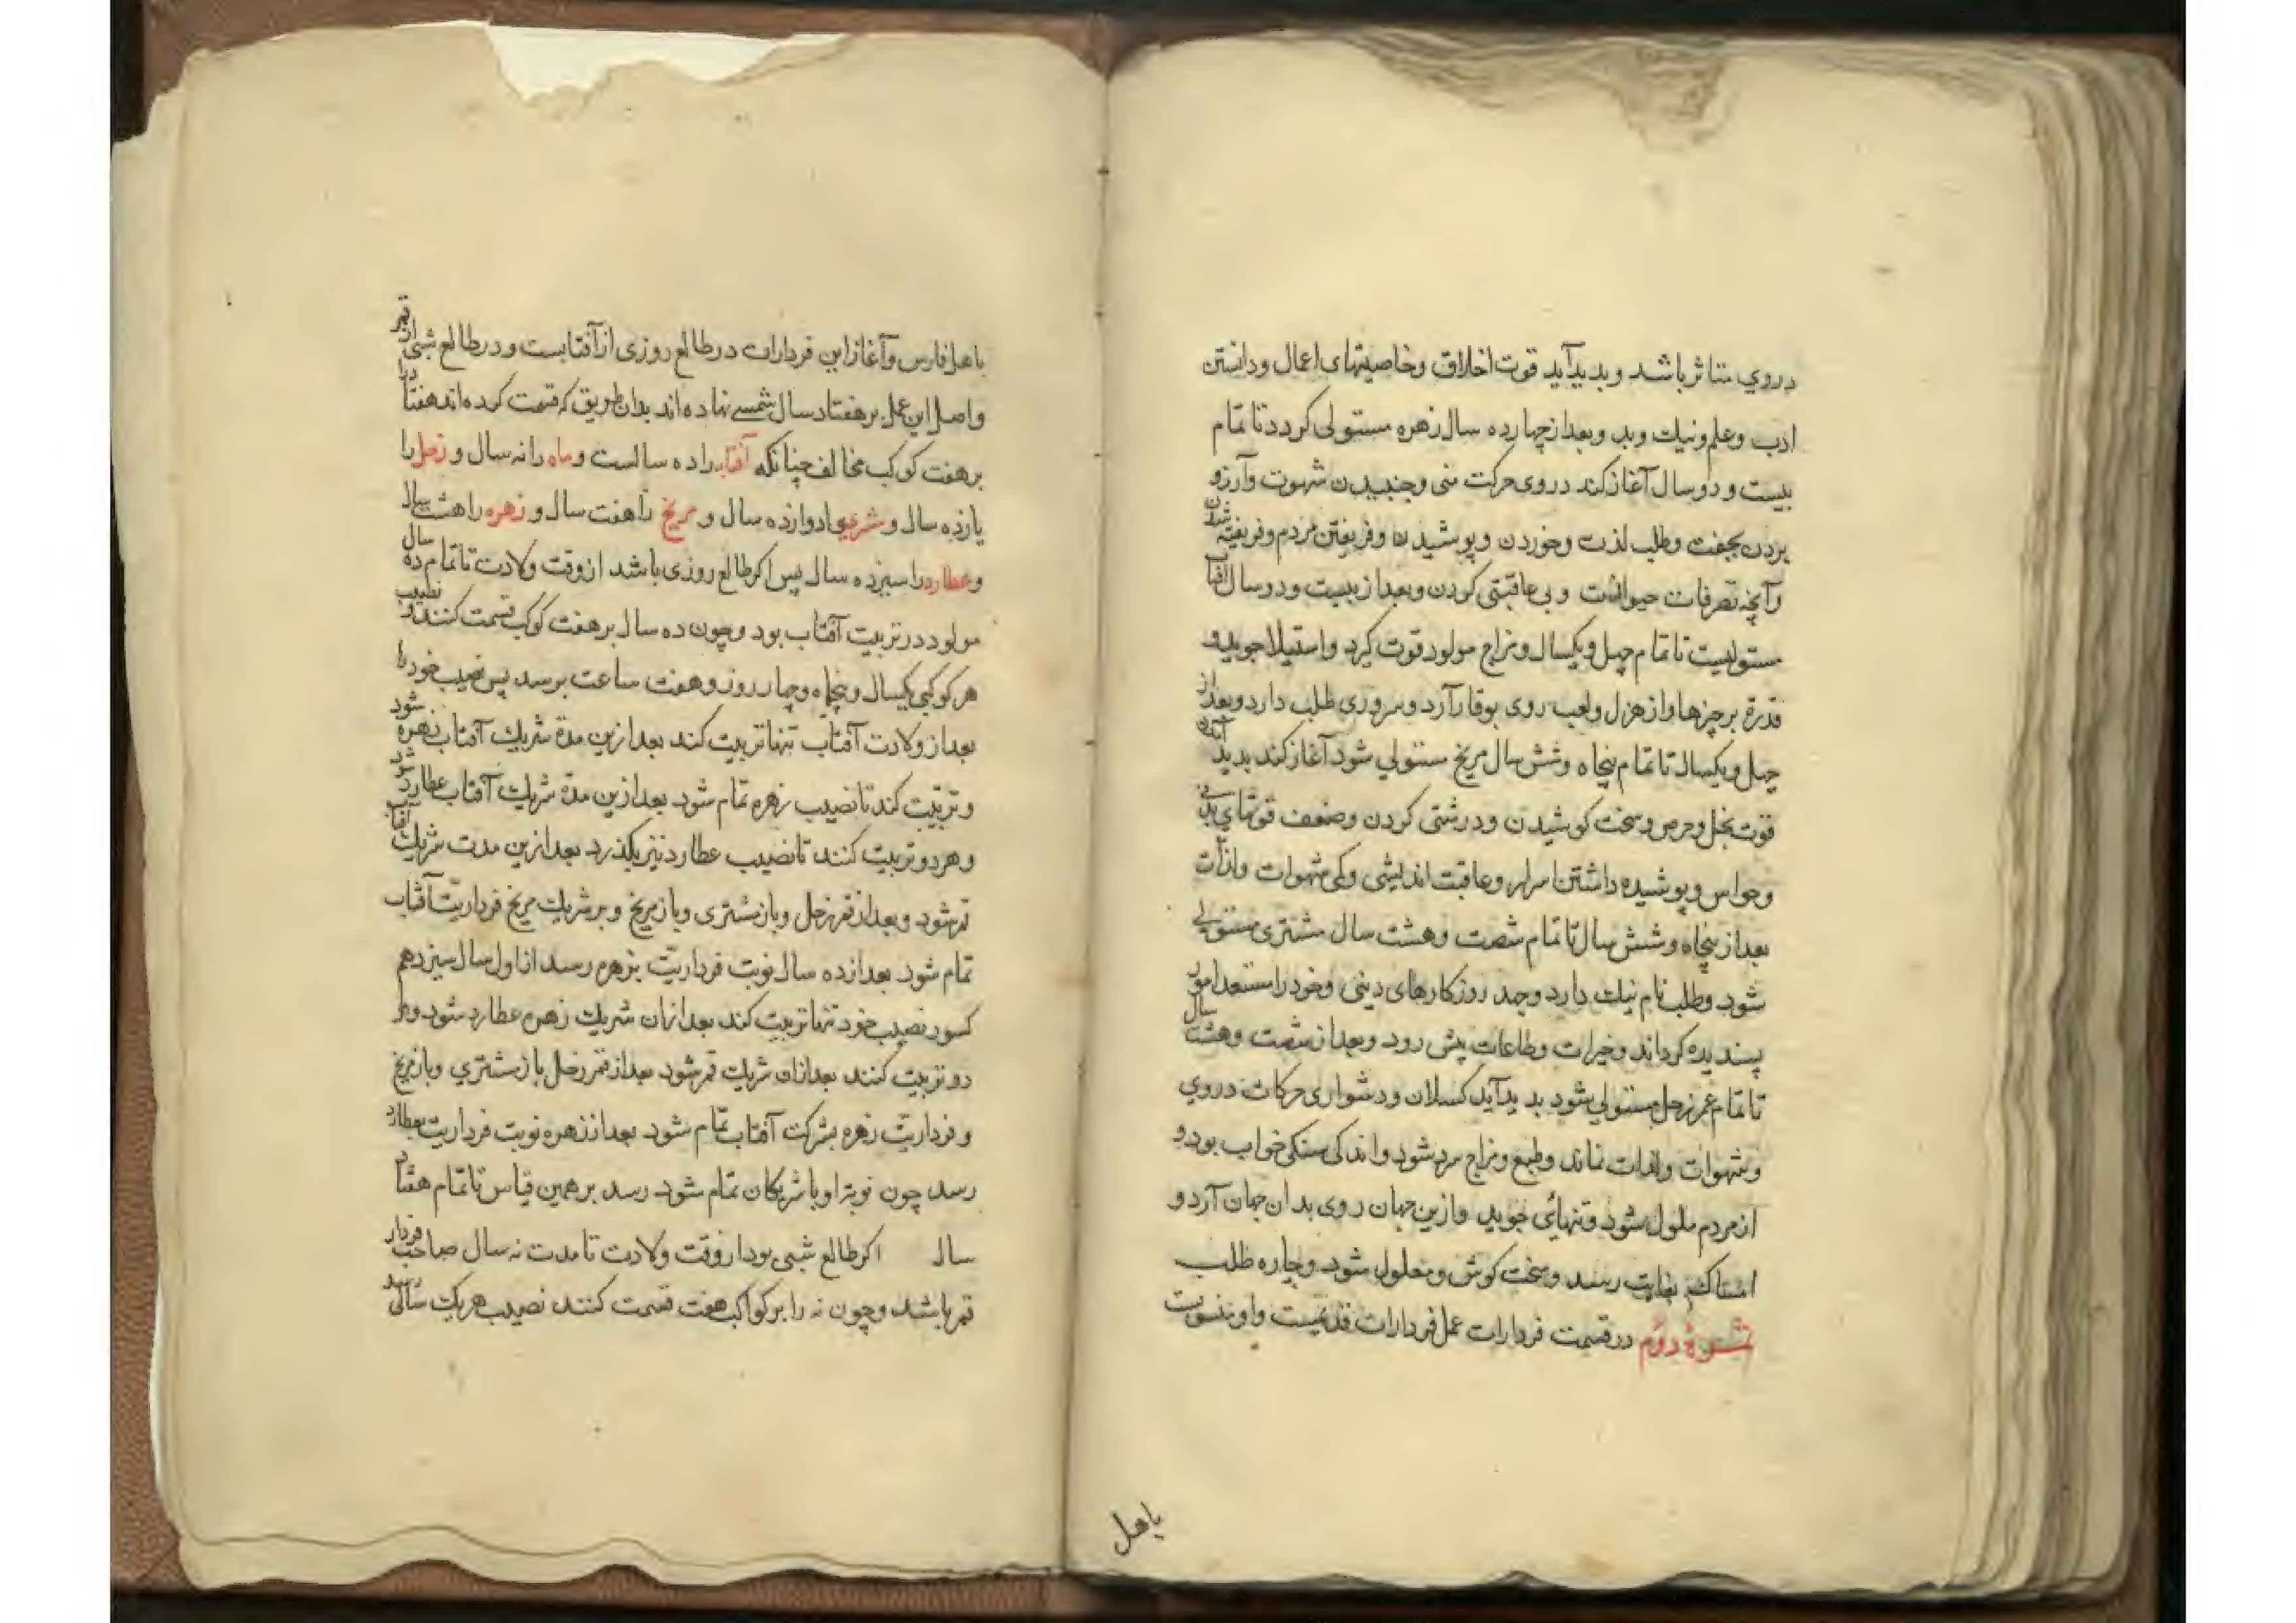 در وي متاثر باشد و بدید آید قوت اخلاق و خاصیتهای اعمال و دانستن
ادب و علم و نیک و بد و بعد از چهارده سال زهره مستولی کردد تا تمام
بیست و دو سال آغاز کند در وی حرکت منی و جنبیدن شهوت و آرزو
بردن بجفت و طلب لذت و خوردن و پوشیدن و فریفتن مردم و فریفته شدن
و آنچه تصرفات حیوانست و بی عاقبتی کردن و بعد از بیست و دو سال آفتاب
مستولیست تا تمام چهل و یکسال و مزاج مولود قوت کیرد و استیلا جوید و
قدرة بر چیزها و از هزل و لعب روی بوقار آرد و سروری طلب دارد و بعد از
چهل و یکسال تا تمام پنجاه و شش سال مریخ مستولي شود آغاز کند بدید آمدن
قوت بخل و حرص و سخت کوشیدن و درشتی کردن و ضعف قوتهاي بدنی
و حواس و پوشیده داشتن اسرار و عاقبت اندیشی و کمی شهوات و لذات
بعد از پنجاه و شش سال تا تمام شصت و هشت سال مشتری مستولی
شود و طلب نام نیک دارد و جهد روز کارهای دینی و خود را مستعد امور
پسندیده کرداند و خیرات و طاعات پیش رود و بعد از شصت و هشت سال
تا تمام عمر زحل مستولي شود بدید آید کسلان و دشواری حرکات در وي
و شهوات و لذات نماند و طبع و مزاج سرد شود و اندکی سنکی خواب بود و
از مردم ملول شود و تنهائي جوید و ازین جهان روی بدان جهان آرد و
امساک بغایت رسد و سخت کوش و معلول شود و چاره طلب
دوم در قسمت فردارات عمل فردارات قدیمیست و او منسوبست
باهل
باهل فارس و آغاز این فردارات در طالع روزی از آفتابست و در طالع شبی از قمر
و اصل این عمل بر هفتاد سال شمسے نهاده اند بدان طریق که قسمت کرده اند هفتاد را
بر هفت کوکب مخالف چنانکه آفتاب را ده سالست و ماه را نه سال و زحل را
یازده سال و مشتری را دوازده سال و مریخ را هفت سال و زهره را هشت سال
و عطارد را سیزده سال پس اکر طالع روزی باشد از وقت ولادت تا تمام ده سال
مولود در تربیت آفتاب بود و چون ده سال بر هفت کوکب قسمت کنند نصیب
هر کوکبي یکسال و پنجاه و چهار روز و هفت ساعت برسد پس نصیب خود را
بعد از ولادت آفتاب تنها تربیت کند بعد ازین مدة شریک آفتاب زهره شود
و تربیت کند تا نصیب زهره تمام شود بعد ازین مدة شریک آفتاب عطارد شود
و هر دو تربیت کنند تا نصیب عطارد نیز بکذرد بعد ازین مدت شریک آفتاب
قمر شود و بعد از قمر زحل و باز مشتری و باز مریخ و بر شریک مریخ فرداریت آفتاب
تمام شود بعد از ده سال نوبت فرداریت بزهره رسد از اول سال سیزدهم
کسور نصیب خود تنها تربیت کند بعد ازان شریک زهره عطارد شود و هر
دو تربیت کنند بعد ازان شریک قمر شود بعد از قمر زحل باز مشتري و باز مریخ
و فرداریت زهره بشرکت آفتاب تمام شود بعد از زهره نوبت فرداریت بعطارد
رسد چون نوبت او با شریکان تمام شود رسد بر همین قیاس تا تمام هفتاد
سال اکر طالع شبی بود از وقت ولادت تا مدت نه سال صاحب فردار
قمر باشد و چون نه را بر کواکب هفت قسمت کنند نصیب هر یک سالی رسد